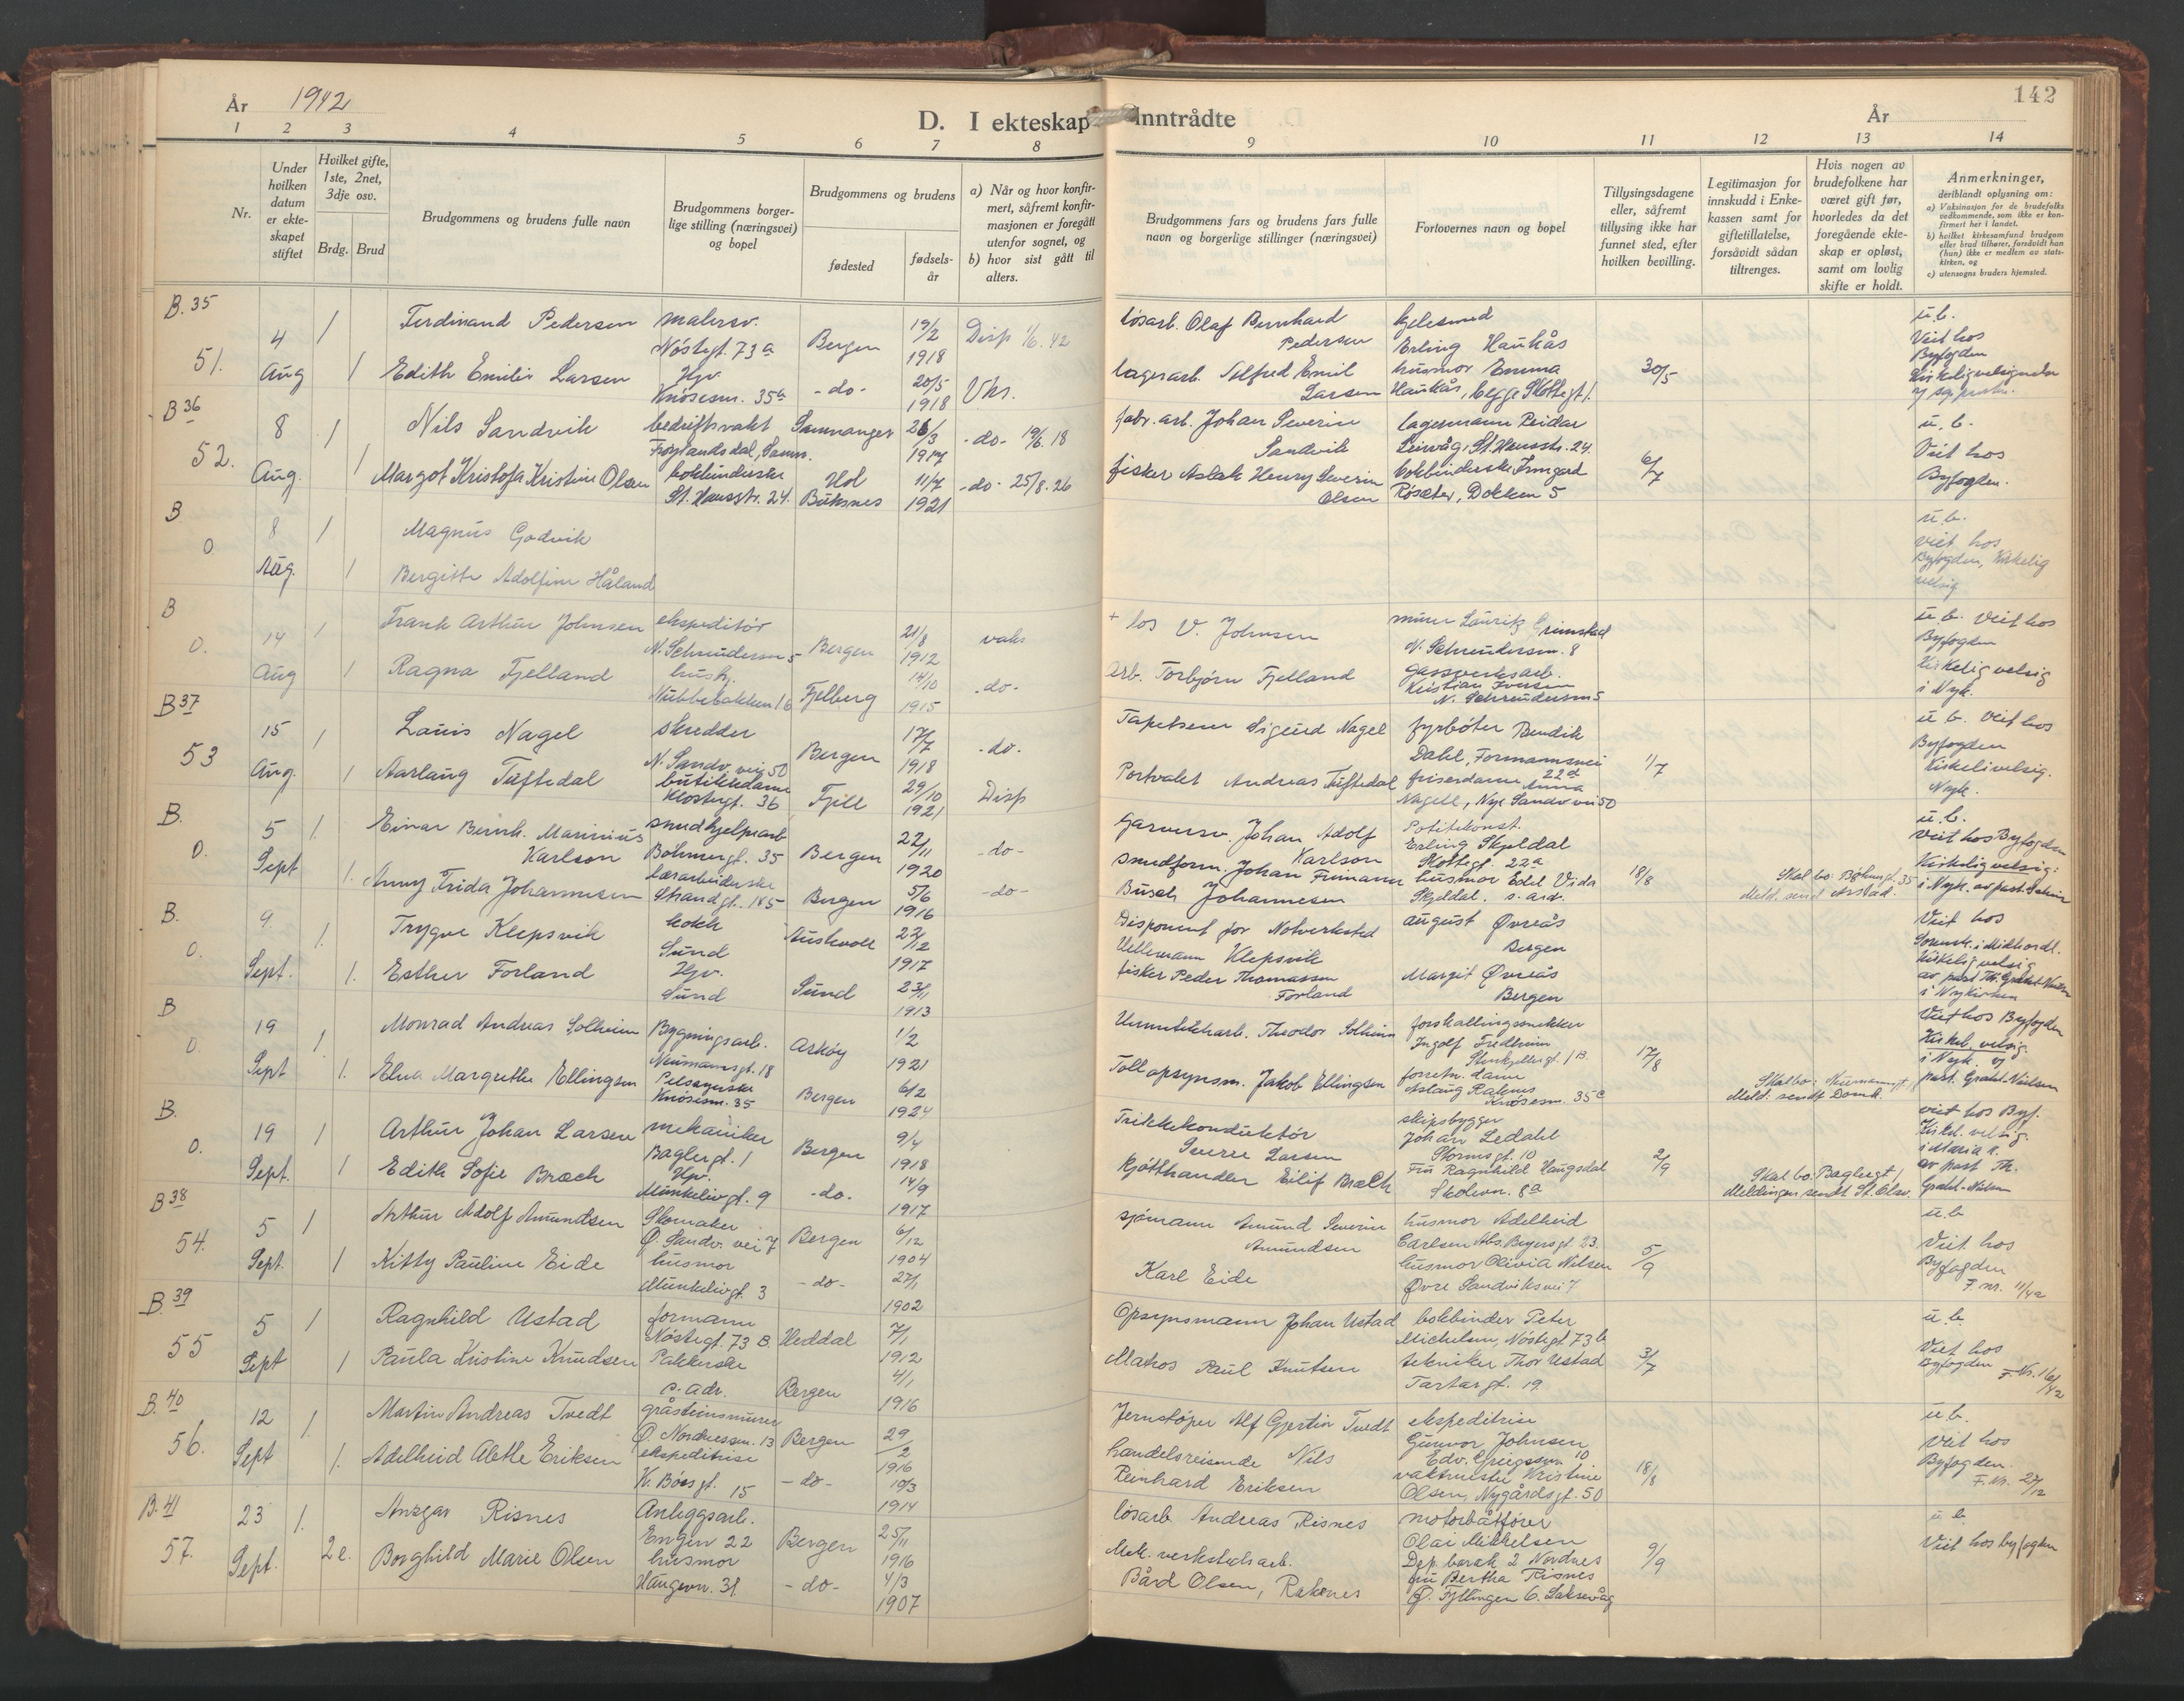 År 1942
D. I ekteskap inntrådte
År
142
1 2 3 4 5 6 7 8 9 10 11 12 13 14
Nr.
Under hvilken datum er ekteskapet stiftet
Hvilket gifte, 1ste, 2net, 3dje osv.
Brdg. Brud
Brudgommens og brudens fulle navn
Brudgommens borgerlige stilling (næringsvei) og bopel
Brudgommens og brudens
fødested
fødselsår
a) Når og hvor konfirmert, såfremt konfirmasjonen er foregått utenfor sognet, og
b) hvor sist gått til alters.
Brudgommens fars og brudens fars fulle navn og borgerlige stillinger (næringsvei)
Forlovernes navn og bopel
Tillysingsdagene eller, såfremt tillysing ikke har funnet sted, efter hvilken bevilling.
Legitimasjon for innskudd i Enkekassen samt for giftetillatelse, forsåvidt sådan tiltrenges.
Hvis nogen av brudefolkene har været gift før, hvorledes da det foregående ekteskap er opløst, samt om lovlig skifte er holdt.
Anmerkninger,
deriblandt oplysning om:
a) Vaksinasjon for de brudefolks vedkommende, som ikke er konfirmert her i landet.
b) hvilket kirkesamfund brudgom eller brud tilhører, forsåvidt han (hun) ikke er medlem av statskirken, og
c) utensogns bruders hjemsted.
B. 35
51.
4 Aug 1 Ferdinand Pedersen malersv. Nøstegt. 73a Bergen 19/2 1918 Disp 1/6. 42 løsarb. Olaf Bernhard Pedersen Erling Haukås u.b. Viet hos Byfogden
1 Edith Emilie Larsen Hjv. Knøsesm. 35a -do- 20/5 1918 Vks. lagerarb. Alfred Emil Larsen husmor Emma Haukås, begge Skottegt 1. 30/5
B 36
52.
8 Aug. 1 Nils Sandvik bedriftsvakt Frøylandsdal, Samn. Samnanger 26/3 1917 -do- 19/6. 18 fabr. arb. Johan Severin Sandvik lagermann Reidar Leirvåg, St. Hansstr. 24. u. b. Viet hos Byfogden.
1 Margot Kristofa Kristine Olsen bokbinderske St. Hansstr. 24. Hol Buksnes 11/7 1921 -do- 25/8. 26 fisker Aslak Henry Severin Olsen bokbinderske Irmgard Røsæter, Dokken 5 6/7
B
0
8 Aug. 1 Magnus Godvik u.b. viet hos Byfogden, Kirkelig velsig
1 Bergitte Adolfine Håland
B
0.
14 Aug 1 Frank Arthur Johnsen ekspeditør N. Schreudersm 5 Bergen 21/8 1912 vaks + los V. Johnsen murer Lauritz Grimstad N. Schreudersm. 8 u. b. Viet hos Byfogden Kirkelig velsig i Nyk.
1 Ragna Fjelland hush. Nubbebakken 16 Fjelberg 14/10 1915 -do- Arb. Torbjørn Fjelland gassverksarb. Kristian Iversen N. Schreudersm 5
B 37
53
15 Aug. 1 Louis Nagel skredder N. Sandv. vei 50 Bergen 17/7 1918 -do. Tapetserer Sigurd Nagel fyrbøter Bendik Dahl, Formannsvei 22d 1/7 u. b. Viet hos Byfogden Kirkeligvelsig. Nyk.
1 Aarlaug Tuftedal butikkdame Klostergt. 36 Fjell 29/10 1921 Disp Portvakt Andreas Tuftedal friserdame Anna Nagell, Nye Sandv vei 50
B.
0.
5 Sept 1. Einar Bernh. Marinius Karlson smedhjelpearb Bøhmergt. 35 Bergen 22/11 1920 -do- Garversv. Johan Adolf Karlson Politikonst. Erling Skjeldal Skottegt. 22a 18/8 Skal bo: Bøhmergt. 35 Meld. sendt Årstad. u. b. viet hos Byfogden Kirkelig velsig:
1. Anny Frida Johannesen Lærarbeiderske Strandgt. 185 Bergen 5/6 1916 -do- Smedform. Johan Frimann Busch Johannesen husmor Edel Vida Skjeldal. s. adr.
B.
0.
9 Sept. 1. Trygve Klepsvik kokk Sund Austevoll 22/12 1917 Disponent for Notverksted Uellemann Klepsvik August Øvreås Bergen Viet hos Sorensk. i Midhordl. Kirkelig velsig
1. Esther Forland Hjv. Sund Sund 23/11 1913 fisker Peder Thomassen Forland Margit Øvreås Bergen
B
0.
19 Sept 1. Monrad Andreas Solheim Bygningsarb. Neumannsgt. 18 Askøy 1/2 1921 Theodor Solheim forskallingssnekker Ingolf Fredheim 17/8 Viet hos Byfogden Kirkel. velsig. i Nyk. v/ past. Grahl-Nielsen
1. Elna Margrethe Ellingsen Pelssyerske Knøsesm. 35 Bergen 6/2 1924 Tollopsynsm. Jakob Ellingsen forretn. dame Aslaug Raknes Knøsesm. 35c Skal bo: Neumannsgt. Meld. sendt Domk.
B.
0.
19 Sept. 1 Arthur Johan Larsen mekaniker Baglergt. 1 Bergen 9/4 1918 Trikkekonduktør Sverre Larsen skipsbygger Johan Ledahl Stormsgt. 10 2/9 Skal bo: Baglergt. 1 Meldingen sendt St. Olav. viet hos Byf. Kirkl. velsig. i Maria k. av past Th. Grahl-Nielsen
1 Edith Sofie Bræck Hjv. Munkelivgt. 9 -do. 14/9 1917 Kjøtthandler Eilif Bræck Fru Ragnhild Haugsdal Skolevn. 8a
B 38
54.
5 Sept. 1 Arthur Adolf Amundsen Skomaker Ø. Sandv. vei 7 Bergen 6/12 1904 sjømann Amund Severin Amundsen husmor Adelheid Carlsen Abs. Beyersgt. 23. 5/9 u.b Viet hos Byfogden F. nr. 11/42
1 Kitty Pauline Eide husmor Munkelivgt. 3 -do- 27/1 1902 Karl Eide husmor Olivia Nilsen Øvre Sandviksvei 7
B. 39
55
5 Sept 1 Ragnhild Ustad formann Nøstegt. 73 B. Heddal 7/1 1912 Opsynsmann Johan Ustad bokbinder Peter Michelsen, Nøstegt 73b 3/7 u. b. Viet hos Byfogden F. Nr. 16/42
1 Paula Kristine Knudsen Pakkerske s. adr. Bergen 4/1 1916 Matros Paul Knutsen tekniker Thor Ustad Tartargt. 19.
B. 40
56.
12 Sept 1. Martin Andreas Tvedt gråsteinsmurer Ø. Nordnessm. 13 Bergen 29/2 1916 Jernstøper Alf Gjertin Tvedt ekspeditrise Gunvor Johnsen Edv. Griegssvn. 10 18/8 u.b. Viet hos Byfogden. F. Nr. 27/12
1. Adelheid Alette Eriksen ekspeditrise K. Bøesgt. 15 -do- 10/3 1914 handelsreisende Nils Reinhard Eriksen vaktmester Kristine Olsen, Nygårdsgt. 50
B. 41
57.
23 Sept. 1. Ansgar Risnes Anleggsarb. Engen 22 Bergen 25/11 1916 løsarb. Andreas Risnes motorbåtfører Olai Mikkelsen Dep. barak 2 Nordnes 9/9 u b. Viet hos byfogden
2e. Borghild Marie Olsen husmor Haugevn. 31. -do- 4/3 1907 Mek. verkstedsarb. Bård Olsen, Raknes fru Bertha Risnes Ø. Fyllingen 6. Laksevåg